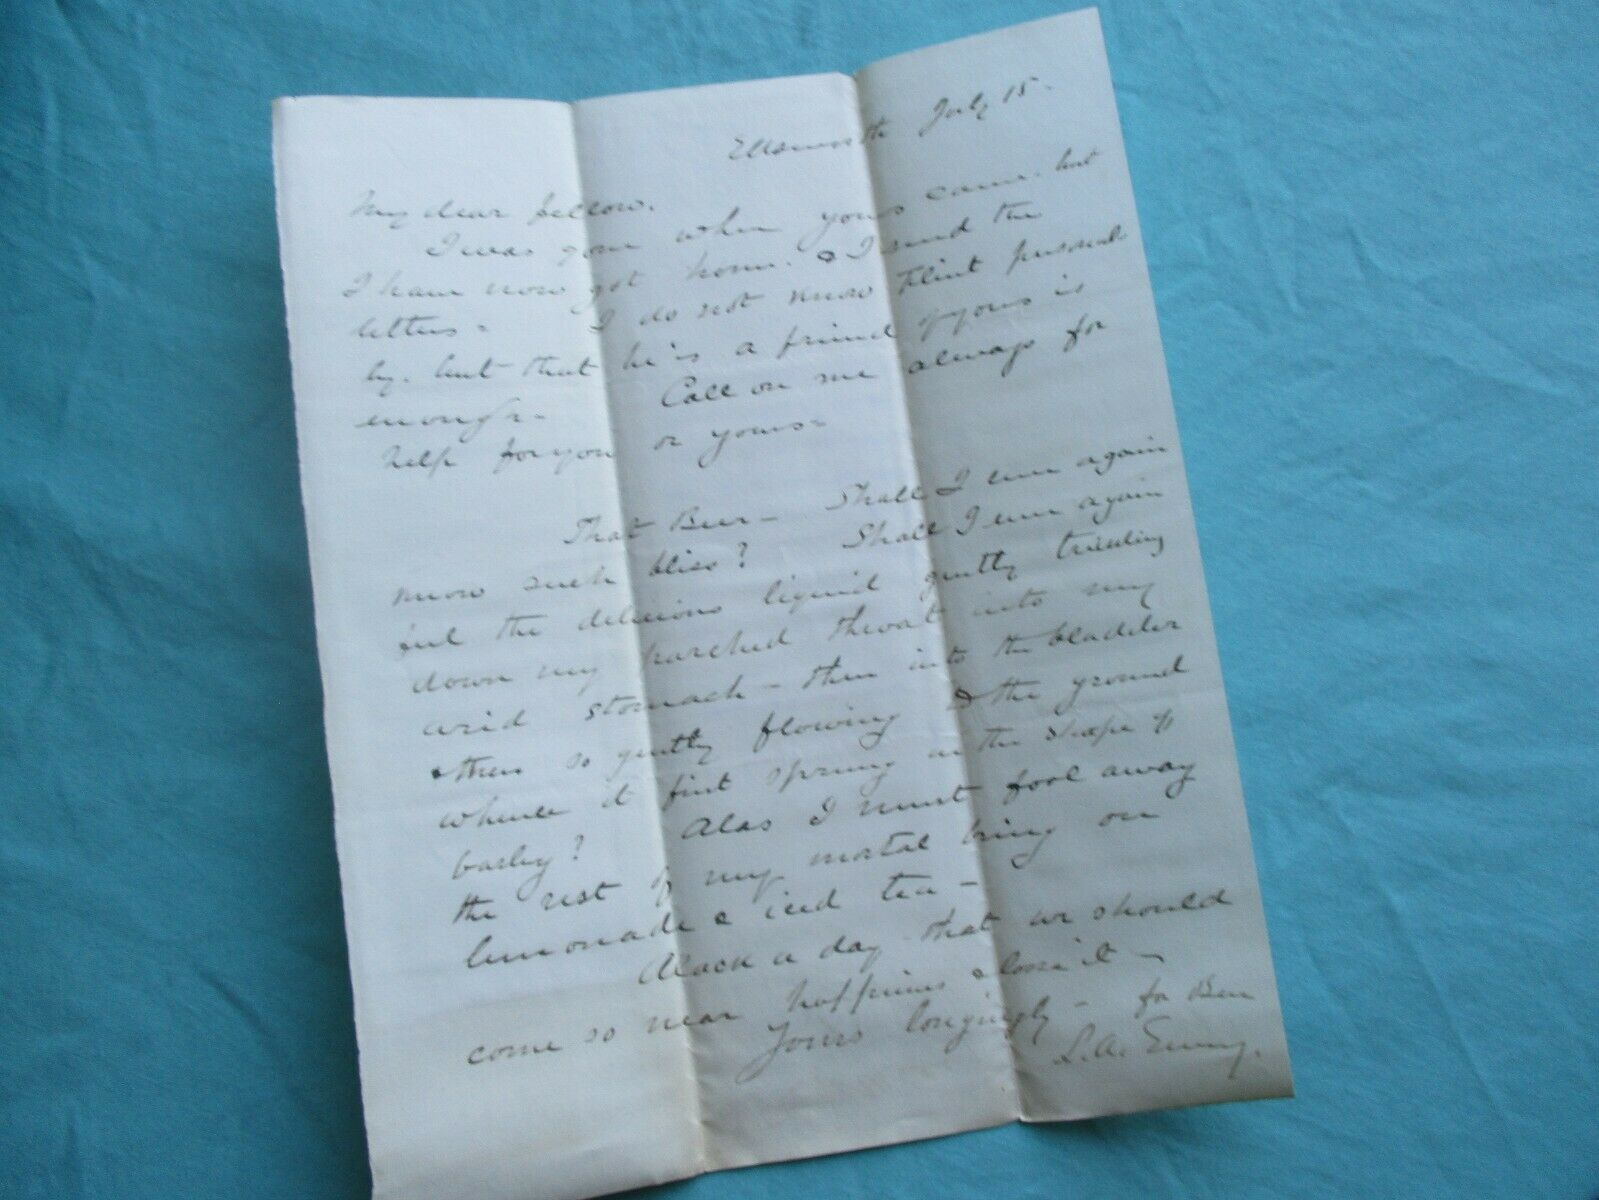 Ellsworth July 15-
My dear fellow.
I was gone when yours came. but
I have now got home. & I send the
letters- I do not know Flint personal-
ly. but that he is a friend of yours is
enough- Call on me always for
help for you or yours-
That Beer- Shall I ever again
know such bliss? Shall I ever again
feel the delicious liquid gently trickling
down my parched throat into my
arid stomach - then into the bladder
& then so gently flowing to the ground
whence it first sprung in the shape of
barley? Alas I must fool away
the rest of my mortal being on
lemonade & iced tea -
Alack a day - that we should
come so near happiness & lose it -
Yours longingly - for Beer
L. A. Emery.